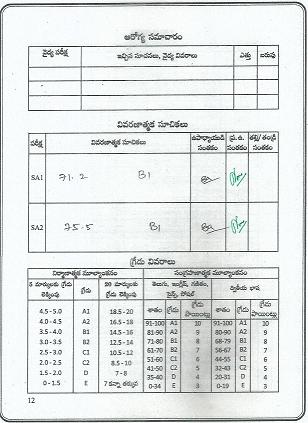 ఆరోగ్య సమాచారం
వైద్య పరీక్ష ఇచ్చిన సూచనలు, వైద్య వివరాలు ఎత్తు బరువు
వివరణాత్మక సూచికలు
పరీక్ష వివరణాత్మక సూచికలు ఉపాధ్యాయుడి సంతకం ప్ర.ఉ. సంతకం తల్లి/ తండ్రి సంతకం
SA1 71.2 B1
SA2 75.5 B1
గ్రేడు వివరాలు
నిర్మాణాత్మక మూల్యాంకనం సంగ్రహణాత్మక మూల్యాంకనం
5 మార్కులకు గ్రేడు లెక్కింపు గ్రేడు 20 మార్కులకు గ్రేడు లెక్కింపు తెలుగు, ఇంగ్లీష్, గణితం, సైన్స్, సోషల్ ద్వితీయ భాష
శాతం గ్రేడు గ్రేడు పాయింట్లు శాతం గ్రేడు గ్రేడు పాయింట్లు
4.5-5.0 A1 18.5-20 91-100 A1 10 91-100 A1 10
4.0-4.5 A2 16.5-18 81-90 A2 9 80-90 A2 9
3.5-4.0 B1 14.5-16 71-80 B1 8 68-79 B1 8
3.0-3.5 B2 12.5-14 61-70 B2 7 56-67 B2 7
2.5-3.0 C1 10.5-12 51-60 C1 6 44-55 C1 6
2.0-2.5 C2 8.5-10 41-50 C2 5 32-43 C2 5
1.5-2.0 D 7-8 35-40 D 4 20-31 D 4
0-1.5 E 7 కన్నా తక్కువ 0-34 E 3 0-19 E 3
12